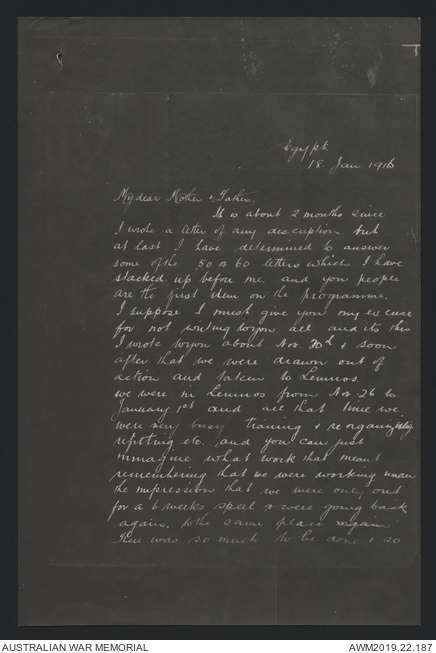 Egypt.
18 Jan 1916
My dear Mother & Father.
It is about 2 months since
I wrote a letter of any description but
at last I have determined to answer
some of the 50 or 60 letters which I have
stacked up before me. and you people
are the first item on the programme.
I suppose I must give you my excuse
for not writing to you all and its this
I wrote to you about Nov. 20th & soon
after that we were drawn out of
action and taken to Lemnos.
we were in Lemnos from Nov. 26 to
January 1st and all that time we
were very busy training & reorganizing
refitting etc. and you can just
immagine what work that meant
remembering that we were working under
the impression that we were only out
for a 6 weeks spell & were going back
again. to the same place again
There was so much to be done & so
AUSTRALIAN WAR MEMORIAL
AWM2019.22.187